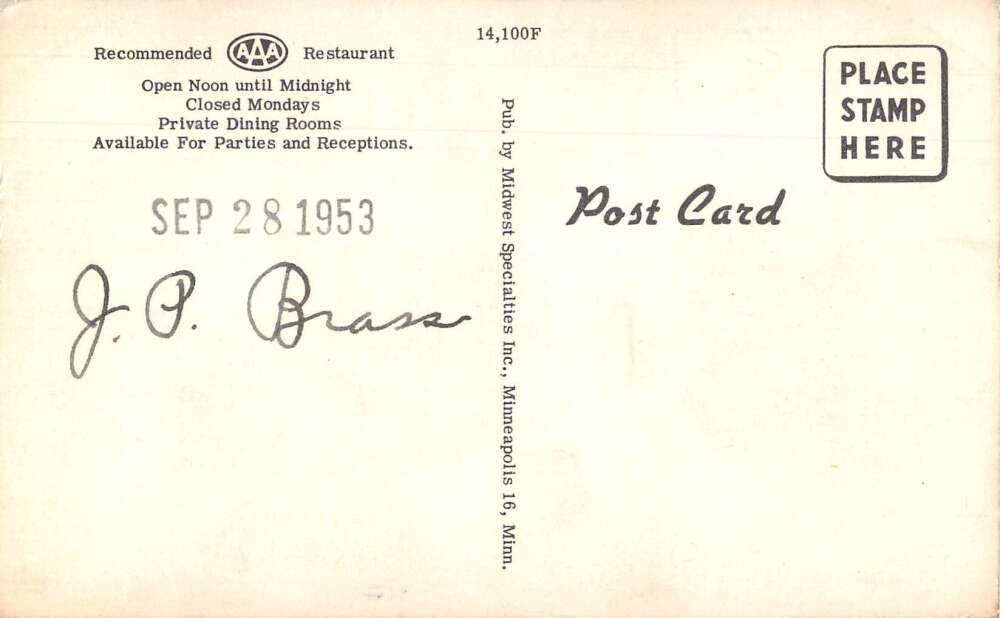 14,100F
Recommended AAA Restaurant
Open Noon until Midnight
Closed Mondays
Private Dining Rooms
Available For Parties and Receptions.
SEP 28 1953
J. P. Brass
Pub. by Midwest Specialties Inc., Minneapolis 16, Minn.
Post Card
PLACE
STAMP
HERE